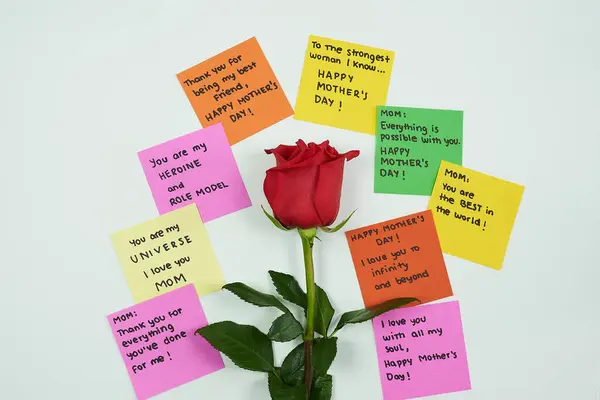 Thank you for
being my best
friend,
HAPPY MOTHER'S
DAY!
To the strongest
woman I know...
HAPPY
MOTHER'S
DAY!
MOM:
Everything is
possible with you.
HAPPY
MOTHER'S
DAY!
You are my
HEROINE
and
ROLE MODEL
MOM:
You are
the BEST in
the world!
You are my
UNIVERSE
I love you
MOM
HAPPY MOTHER'S
DAY!
I love you to
infinity
and beyond
MOM:
Thank you for
everything
you've done
for me!
I love you
with all my
soul,
Happy Mother's
Day!